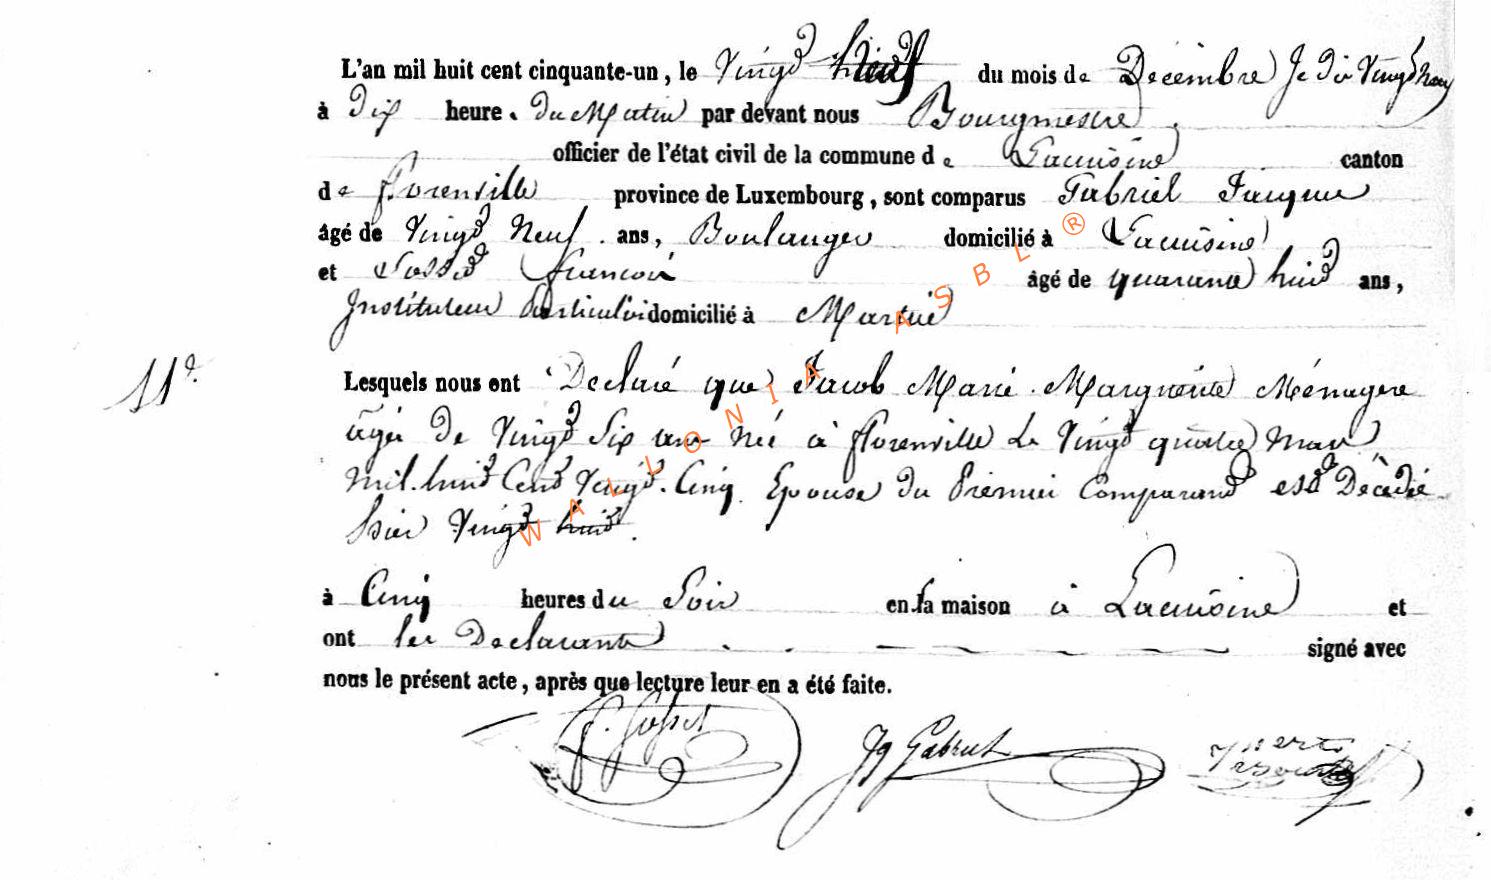 L'an mil huit cent cinquante-un, le Vingt neuf du mois de Decembre Je dis Vingt neuf
à dix heure. du Matin par devant nous Bourgmestre
officier de l'état civil de la commune de Lacuisine canton
de florenville province de Luxembourg, sont comparus Gabriel Jacque
âgé de Vingt Neuf ans, Boulanger domicilié à Lacuisine
et Gosset francois âgé de quarante huit ans,
Instituteur Particulier domicilié à Martué
11e.
Lesquels nous ont Declaré que Jacob Marie Margueritte Ménagere
agée de Vingt Six ans Née à florenville Le Vingt quatre Mars
mil. huit Cent Vingt. Cinq Epouse du Premier Comparant est Décédée
hier Vingt huit.
à Cinq heures du Soir en sa maison à Lacuisine et
ont les Declarants signé avec
nous le présent acte, après que lecture leur en a été faite.
f. Gosset Jq Gabriel
WALLONIA ASBL ®